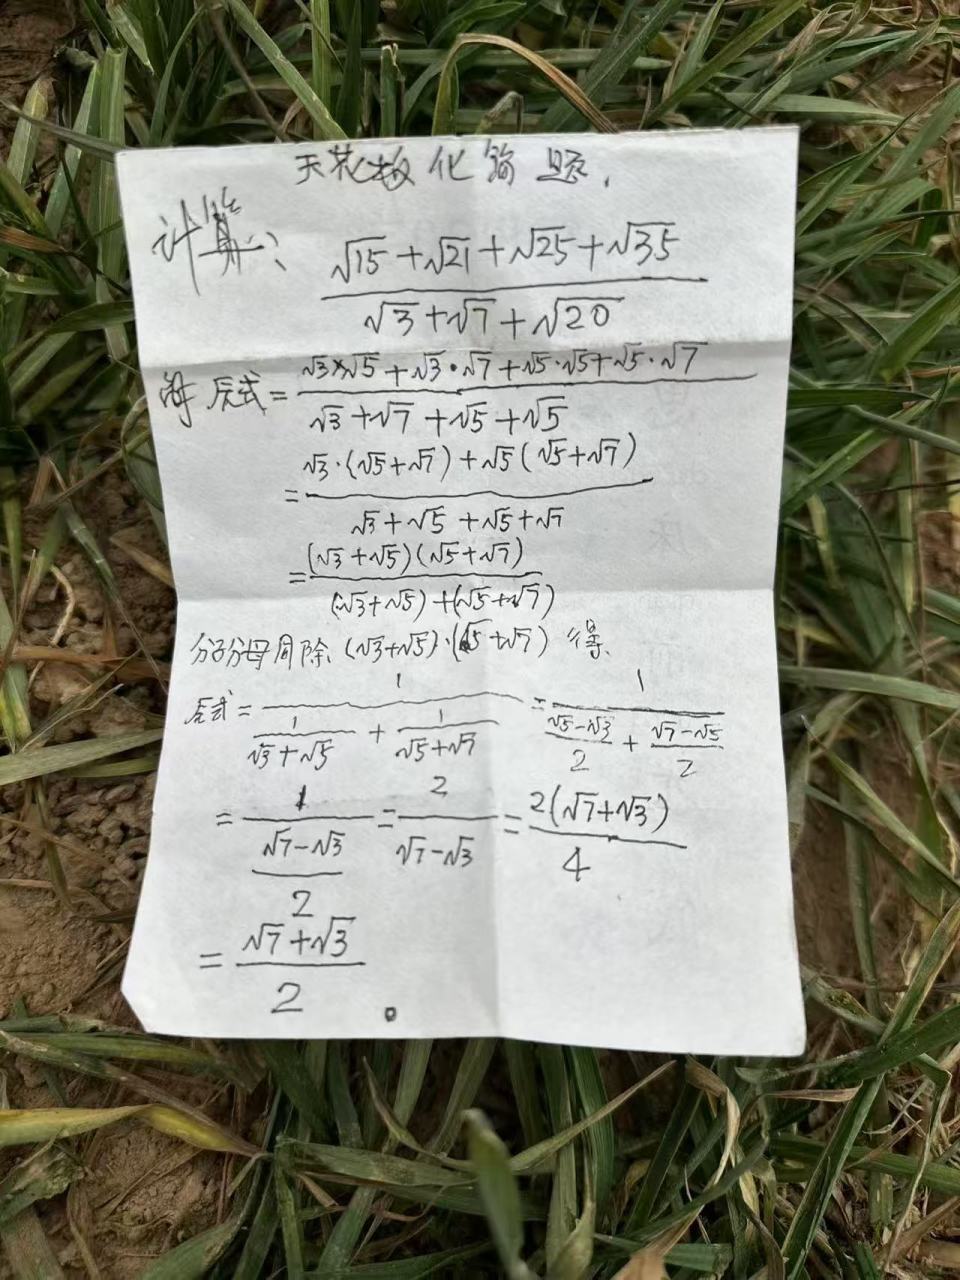 天花板化简题.
计算:、
(√15+√21+√25+√35)/(√3+√7+√20)
解 原式=(√3×√5+√3·√7+√5·√5+√5·√7)/(√3+√7+√5+√5)
=(√3·(√5+√7)+√5(√5+√7))/(√3+√5+√5+√7)
=((√3+√5)(√5+√7))/((√3+√5)+(√5+√7))
分子分母同除(√3+√5)·(√5+√7) 得、
原式=1/(1/(√3+√5)+1/(√5+√7))=1/((√5-√3)/2+(√7-√5)/2)
=1/((√7-√3)/2)=2/(√7-√3)=2(√7+√3)/4
=(√7+√3)/2。